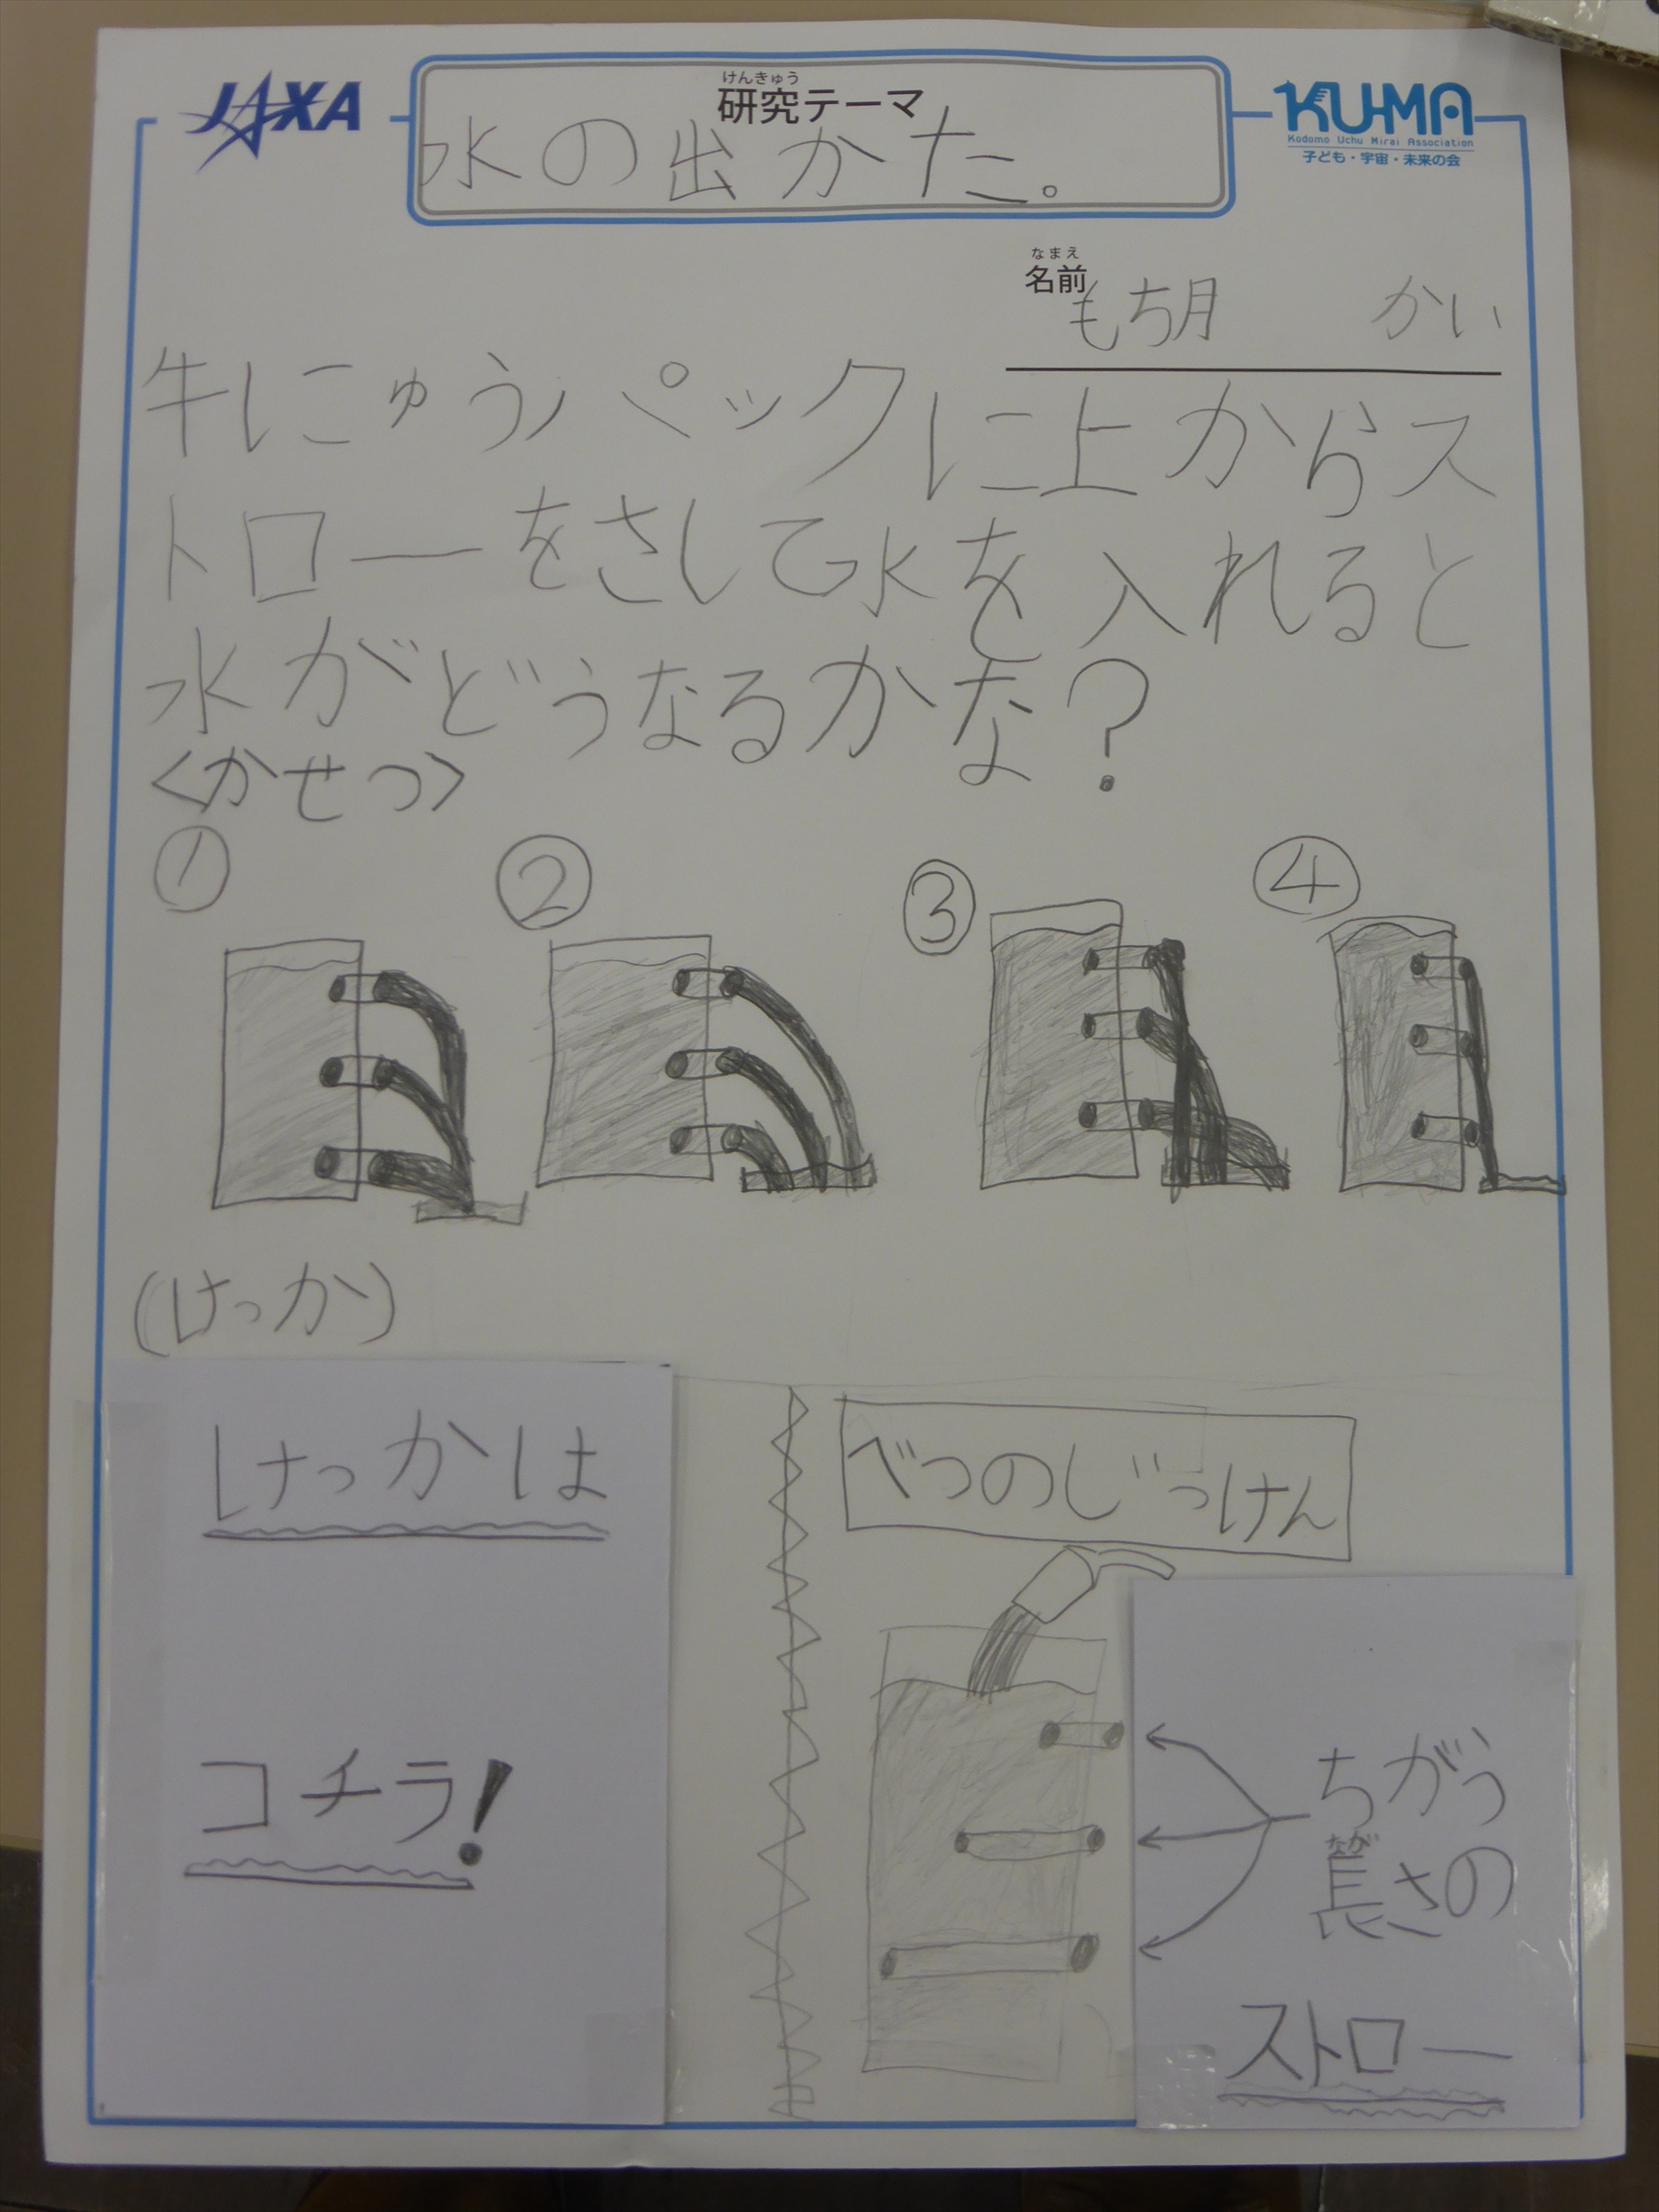 JAXA
けんきゅう
研究テーマ
水の出かた。
KU-MA
Kodomo Uchu Mirai Association
子ども・宇宙・未来の会
なまえ
名前
もち月 かい
牛にゅうパックに上からス
トローをさして水を入れると
水がどうなるかな?
<かせつ>
① ② ③ ④
(けっか)
けっかは
コチラ!
べつのじっけん
ちがう
なが
長さの
ストロー